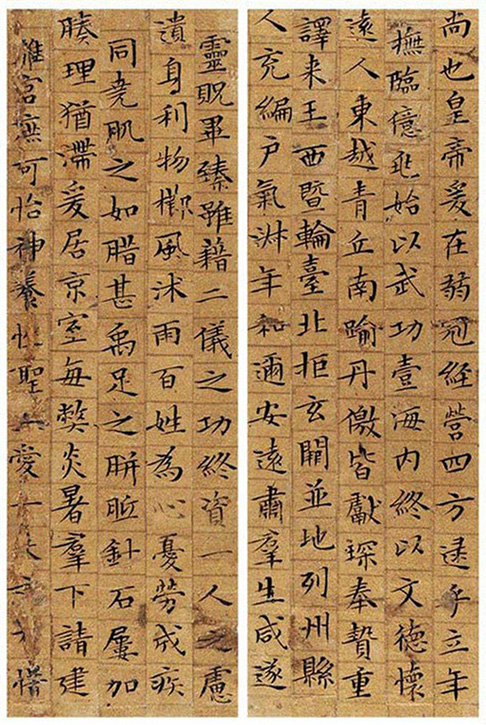 尚也皇帝爰在弱冠經營四方逮乎立年
撫臨億兆始以武功壹海内終以文德懷
遠人東越青丘南踰丹徼皆獻琛奉贄重
譯来王西暨輪臺北拒玄闕並地列州縣
人充編户氣淋年和邇安遠肅羣生咸遂
靈貺畢臻雖藉二儀之功終資一人之慮
遺身利物櫛風沐雨百姓為心憂勞成疾
同堯肌之如腊甚禹足之胼胝針石屢加
腠理猶滯爰居京室每弊炎暑羣下請建
離宮庶可怡神養性聖上愛一夫惜